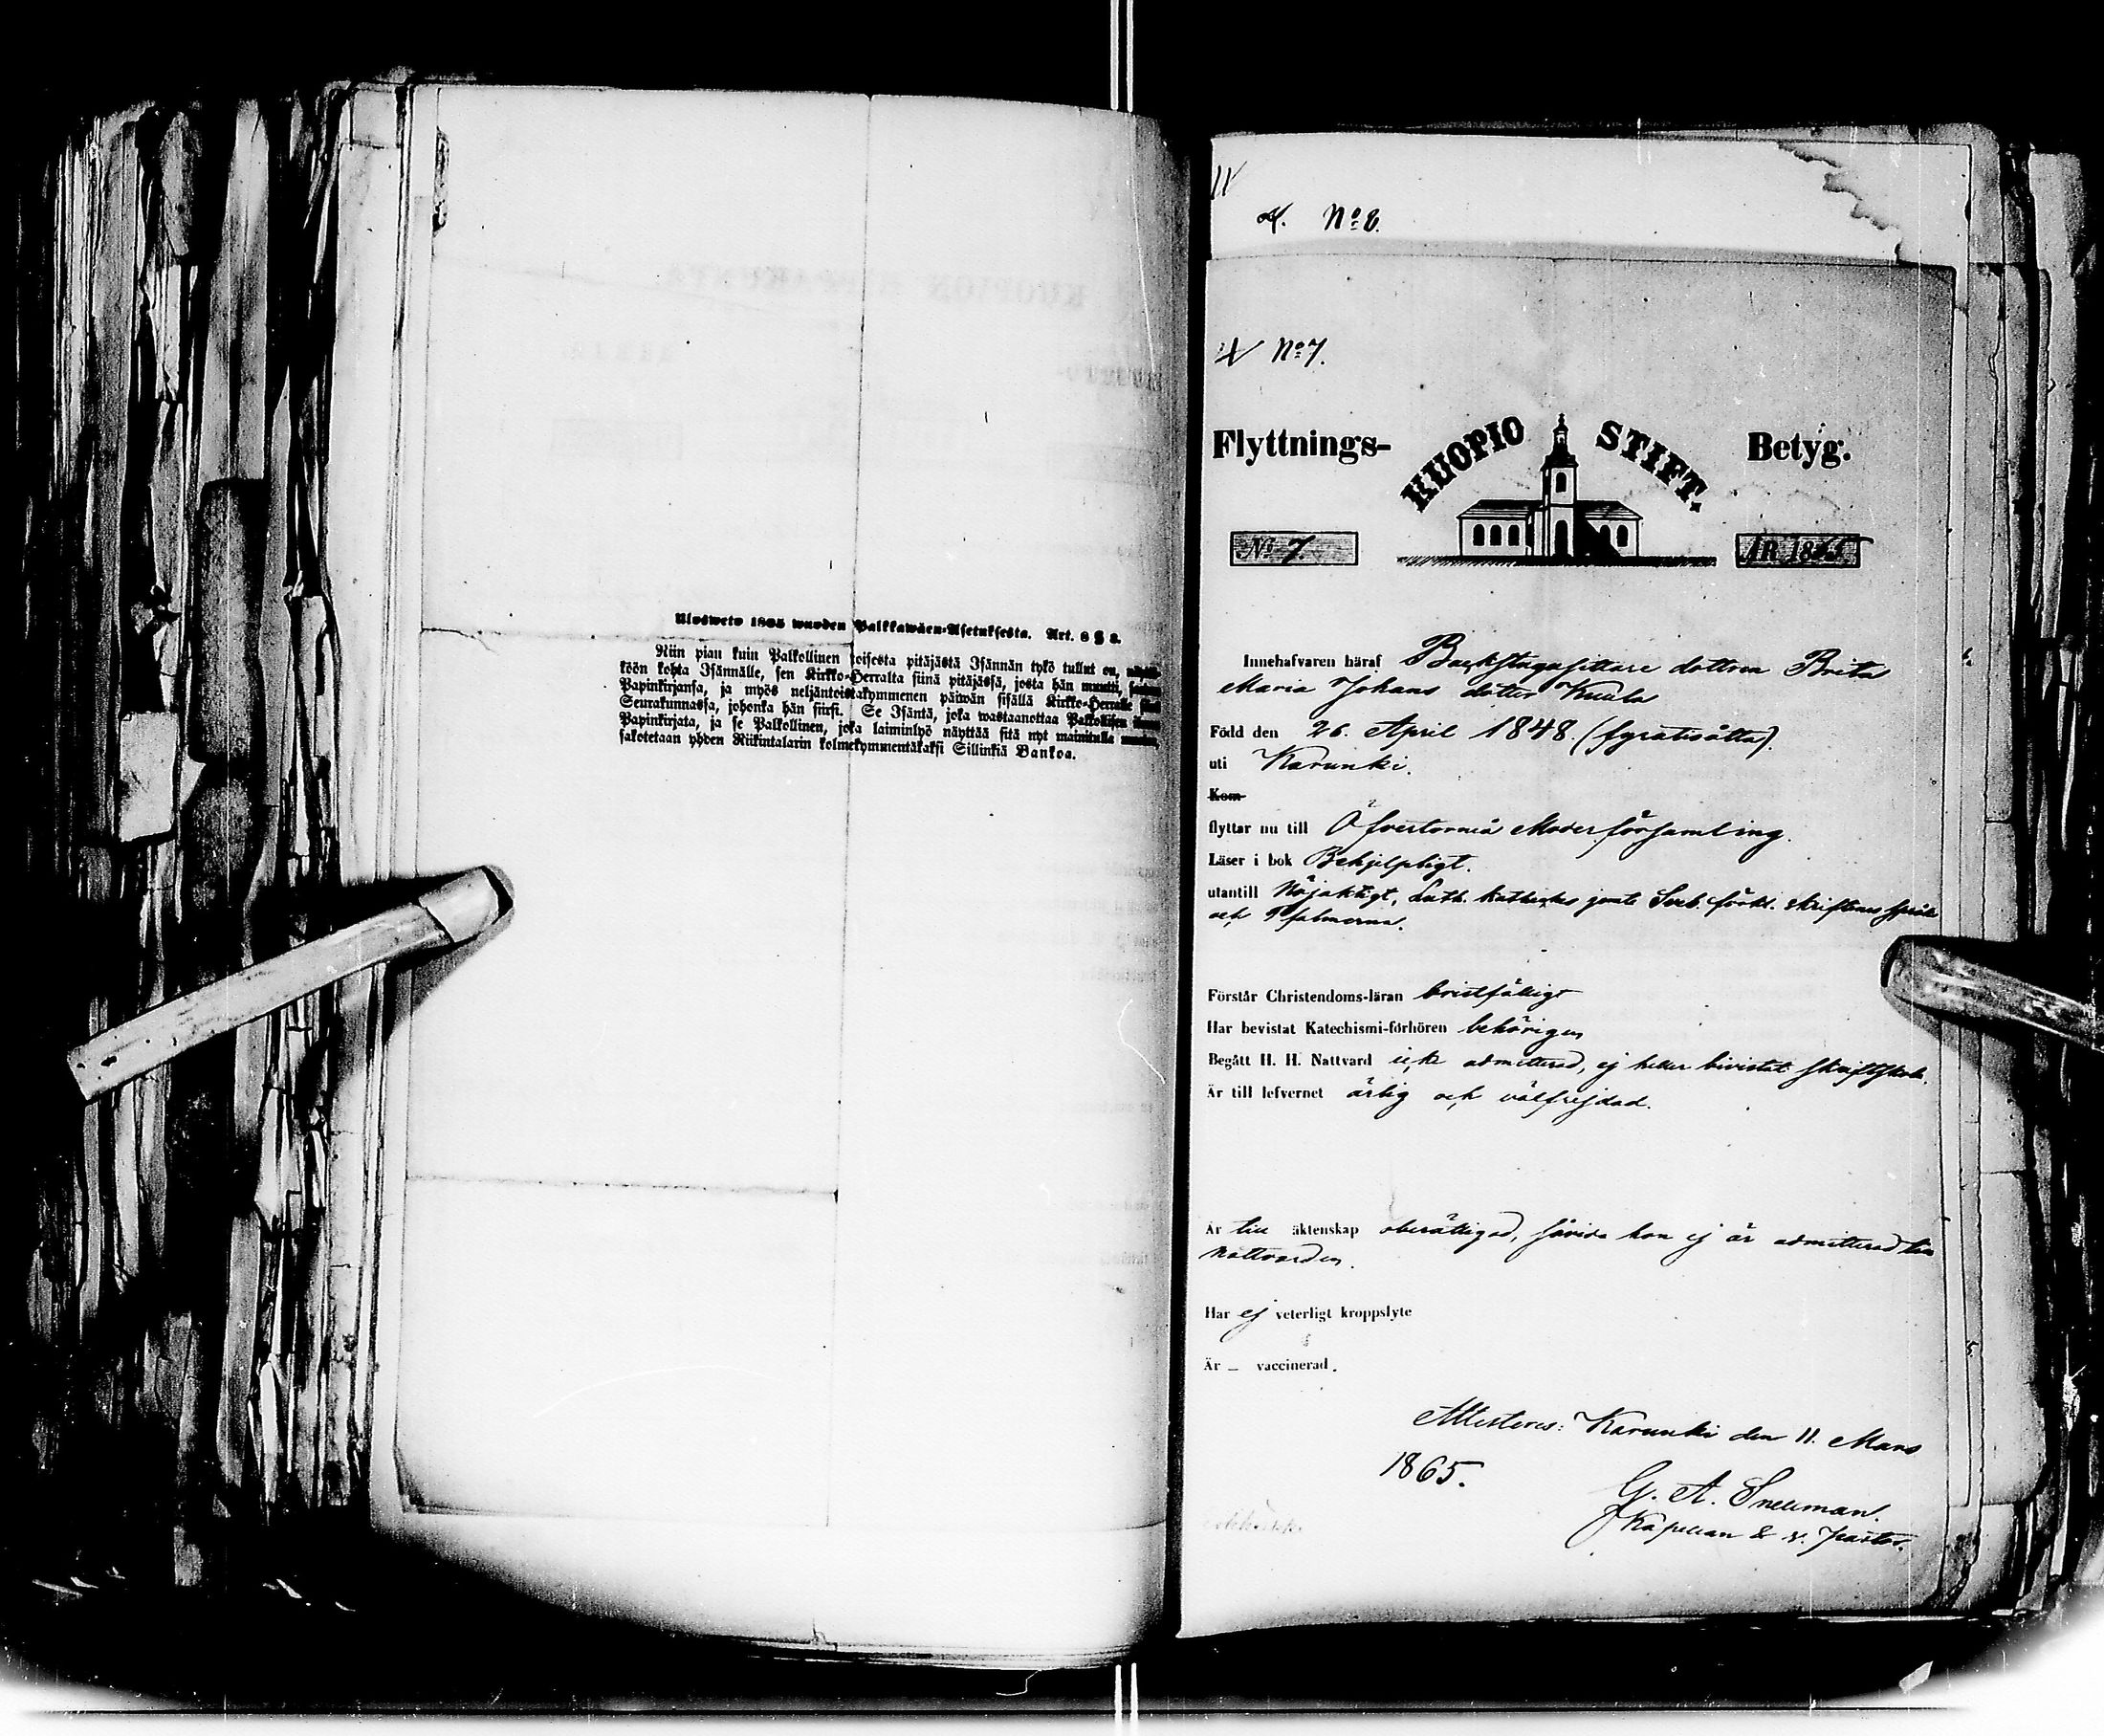 Ulosweto 1805 wuoden Palkkawäen-Asetuksesta. Art. 8 § 3.
Niin pian kuin Palkollinen toisesta pitäjästä Isännän tykö tullut on,
köön kohta Isännälle, sen Kirkko-Herralta siinä pitäjässä, josta hän muutti,
Papinkirjansa, ja myös neljäntoistakymmenen päiwän sisällä Kirkko-Herralle
Seurakunnassa, johonka hän siirsi. Se Isäntä, joka wastaanottaa Palkollisen
Papinkirjata, ja se Palkollinen, joka laiminlyö näyttää sitä nyt mainitulla
sakotetaan yhden Riikintalarin kolmekymmentäkaksi Sillinkiä Bankoa.
No 8.
No 7.
Flyttnings- KUOPIO STIFT. Betyg.
No 7. ÅR 1865
Innehafvaren häraf Backstugusittare dottren Brita
Maria Johans dotter Kuula
Född den 26. April 1848. (fyratioåtta).
uti Karunki.
Kom
flyttar nu till Öfvertorneå Moderförsamling.
Läser i bok Behjelpligt.
utantill Nöjaktigt, Luth. kateches jemte Sveb. förkl. skriftenes språk
och Psalmerna.
Förstår Christendoms-läran bristfälligt
Har bevistat Katechismi-förhören behörigen
Begått H. H. Nattvard icke admitterad, ej heller bivistat skriftskola.
Är till lefvernet ärlig och välfrejdad.
Är till äktenskap oberättigad, såvida hon ej är admitterad till
Nattvarden.
Har ej veterligt kroppslyte
Är – vaccinerad.
Attesteras: Karunki den 11. Mars
1865.
G. A. Snellman.
Kapellan & v. Pastor.